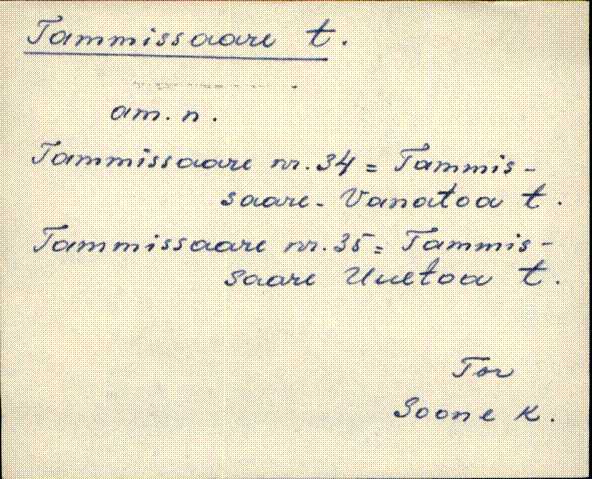 Tammissaare t.
am. n.
Tammissaare nr. 34 = Tammis-
saare-Vanatoa t.
Tammissaare nr. 35 = Tammis-
saare Uuetoa t.
Tor
Soone k.